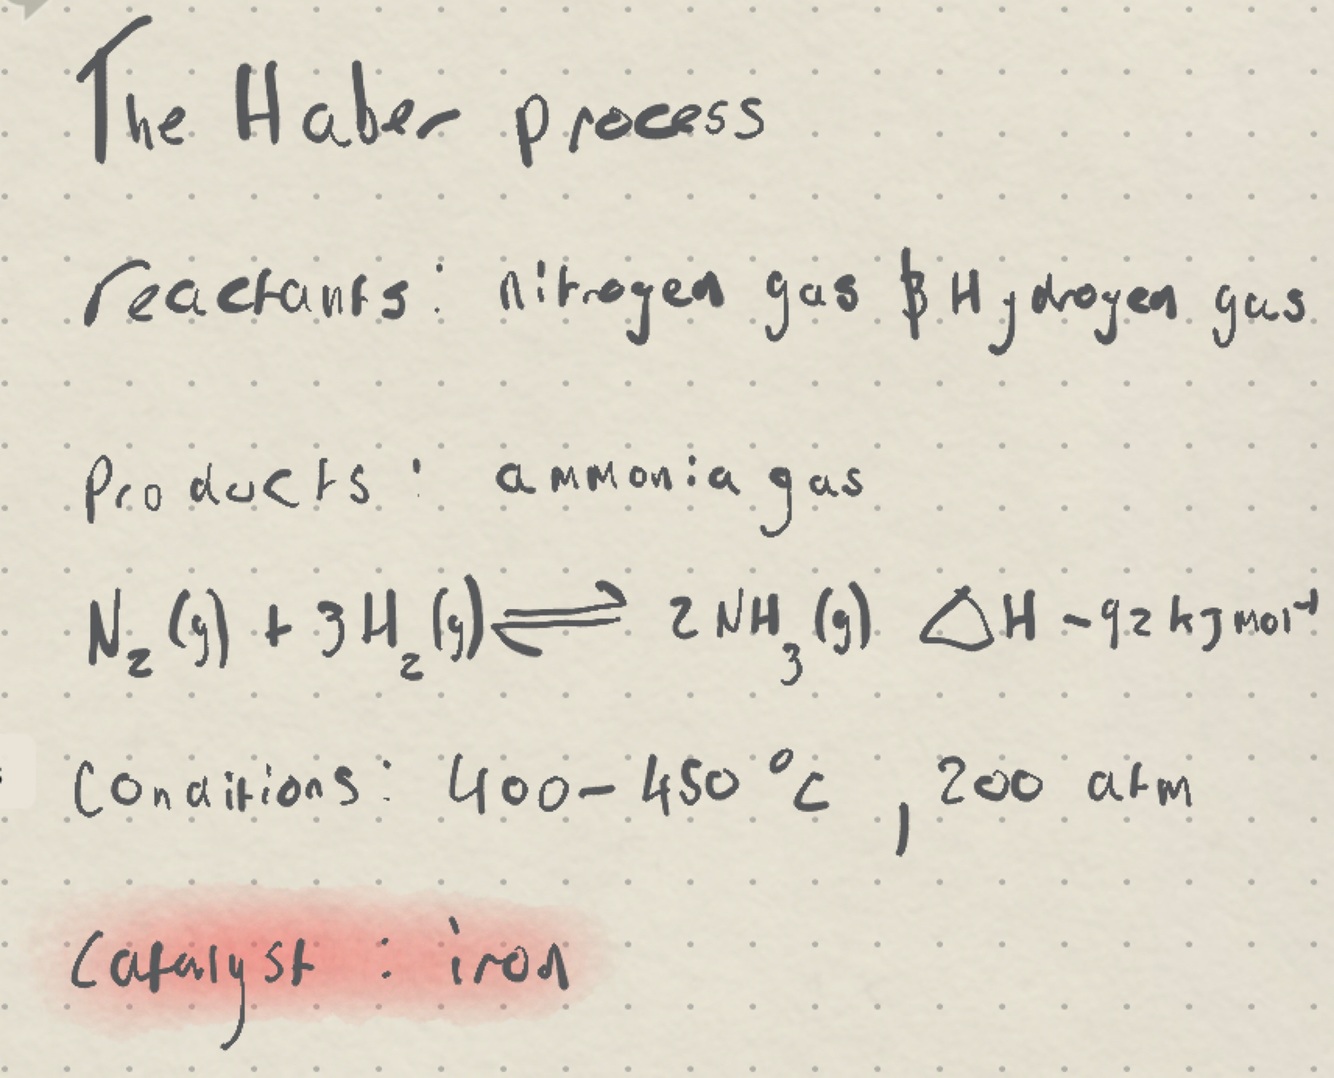 The Haber process
reactants: nitrogen gas & Hydrogen gas
Products: ammonia gas
N₂(g) + 3H₂(g) ⇌ 2NH₃(g) △H -92kJmol⁻¹
Conditions: 400-450°c, 200 atm
Catalyst: iron